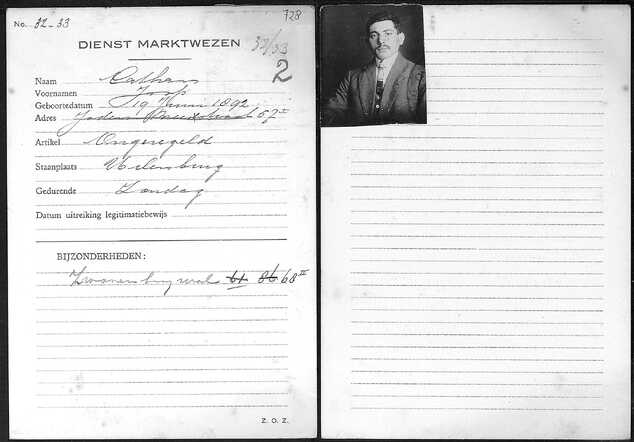 No. 32-33
728
DIENST MARKTWEZEN
32/33
2
Naam
Voornamen Joop
Geboortedatum 19 Juni 1892
Adres Joden Breestraat 67 II
Artikel Ongeregeld
Staanplaats Uilenburg
Gedurende Zondag
Datum uitreiking legitimatiebewijs
BIJZONDERHEDEN:
Zwanenburgwal 61 86 68 II
Z. O. Z.